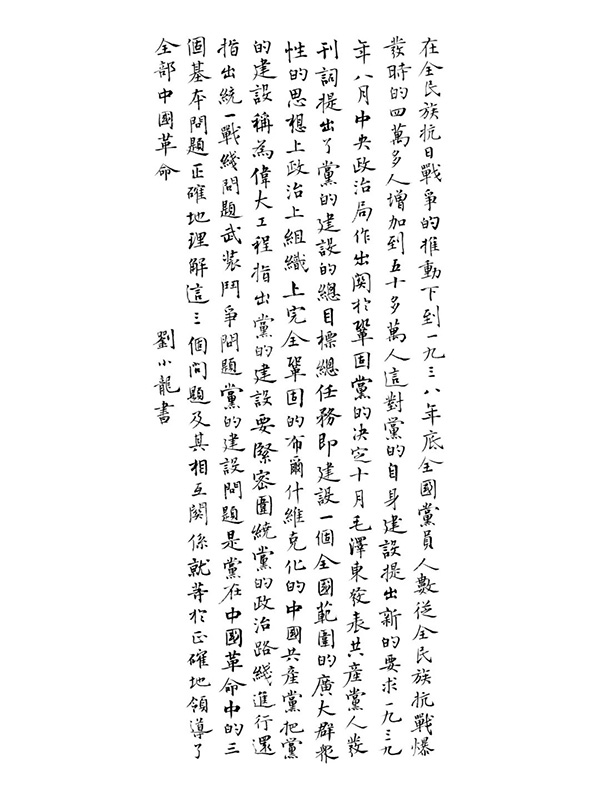 在全民族抗日戰爭的推動下到一九三八年底全國黨員人數從全民族抗戰爆
發時的四萬多人增加到五十多萬人這對黨的自身建設提出新的要求一九三九
年八月中央政治局作出関於鞏固黨的决定十月毛澤東發表共產黨人發
刊詞提出了黨的建設的總目標總任務即建設一個全國範圍的廣大群衆
性的思想上政治上組織上完全鞏固的布爾什維克化的中國共產黨把黨
的建設稱為偉大工程指出黨的建設要緊密圍繞黨的政治路綫進行還
指出統一戰綫問題武装鬥爭問題黨的建設問題是黨在中國革命中的三
個基本問題正確地理解這三個問題及其相互関係就等於正確地領導了
全部中國革命
劉小龍書